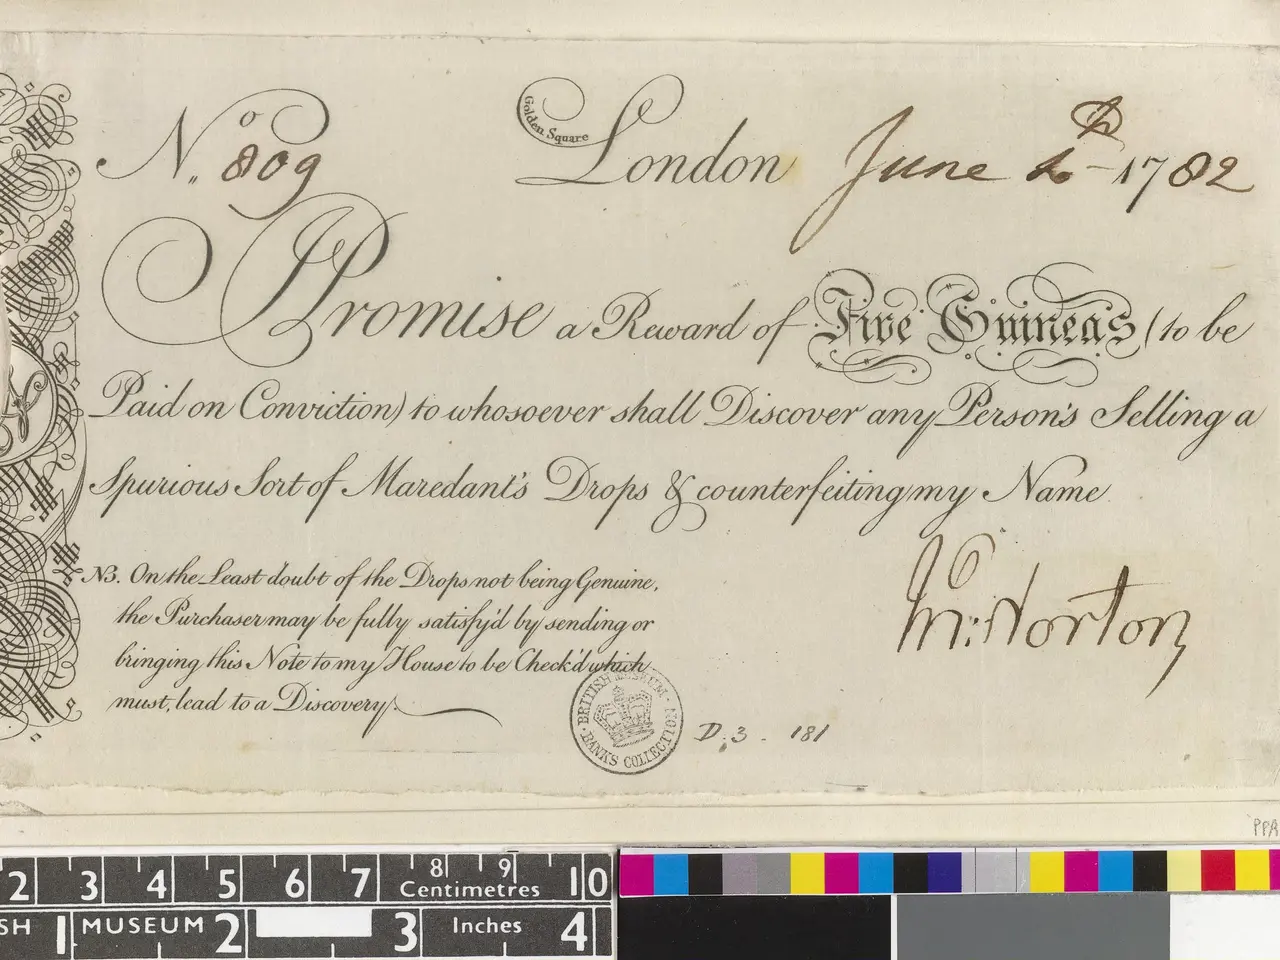 No. 809 Golden Square London June 17 82
I Promise a Reward of Five Guineas (to be
Paid on Conviction) to whosoever shall Discover any Person's Selling a
Spurious Sort of Maredant's Drops & counterfeiting my Name
Norton
NB. On the Least doubt of the Drops not being Genuine,
the Purchaser may be fully satisfy'd by sending or
bringing this Note to my House to be Check'd which
must, lead to a Discovery.
BRITISH MUSEUM · BANKS COLLECTION
D. 3 - 181
PPA
2 3 4 5 6 7 8 9 10
Centimetres
SH 1 MUSEUM 2 3 Inches 4